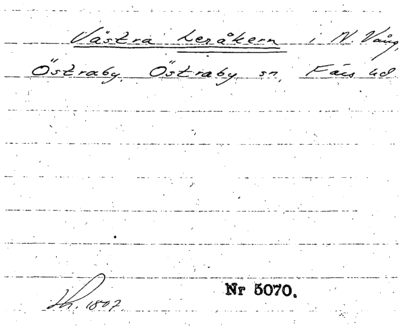 Västra Leråkern i N. Vång,
Östraby, Östraby sn, Färs hd
Nr 5070.
Sk. 1807